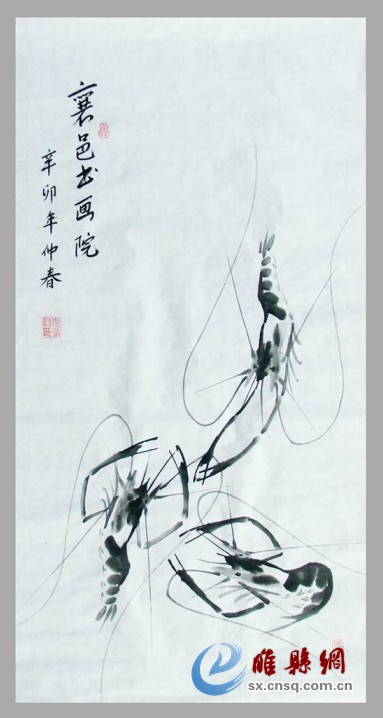 襄邑书画院
辛卯年仲春
睢縣網
sx.cnsq.com.cn